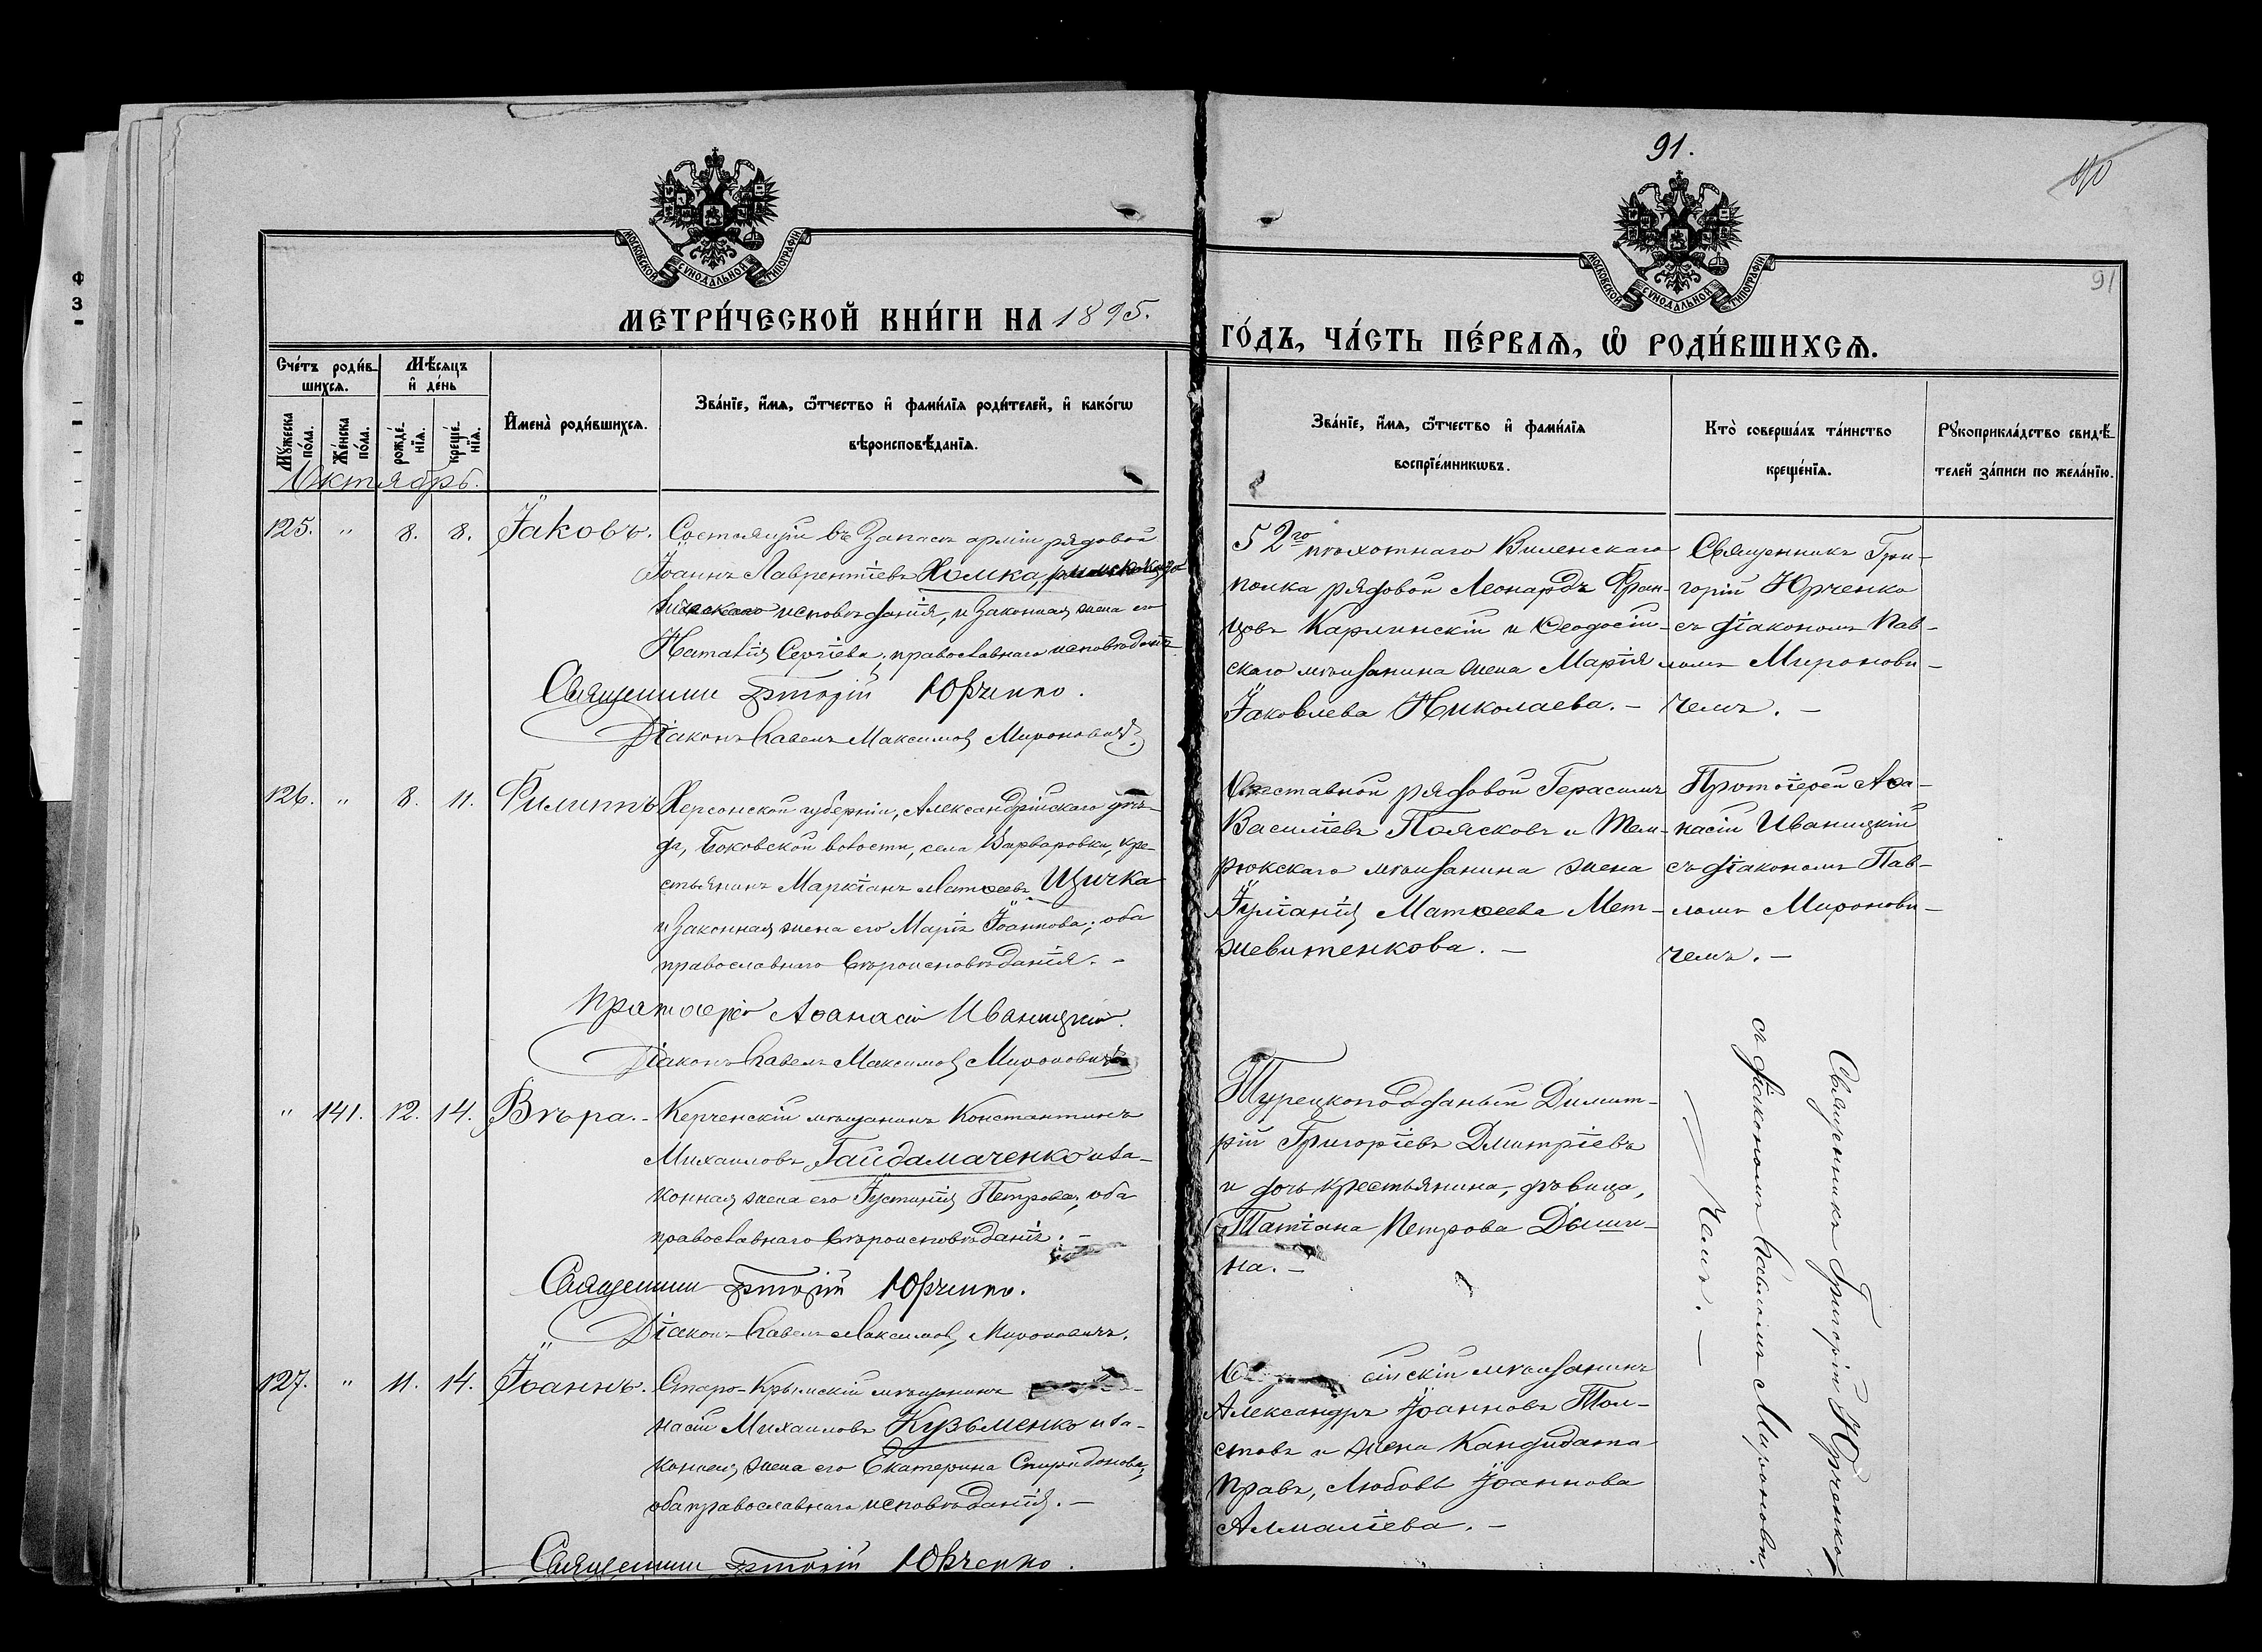 91.
90
91
МОСКОВСКОЙ СѴНОДАЛЬНОЙ ТИПОГРАФІИ
МОСКОВСКОЙ СѴНОДАЛЬНОЙ ТИПОГРАФІИ
МЕТРИ́ЧЕСКОЙ КНИ́ГИ НА 1895.
ГО́ДЪ, ЧА́СТЬ ПЕ́РВАѦ, Ѡ РОДИ́ВШИХСѦ.
Сче́тъ роди́в-
шихсѧ.
Мꙋ́жеска по́ла.
Же́нска по́ла.
Мѣ́сѧцъ
и҆ де́нь
рожде́-
нїѧ.
креще́-
нїѧ.
И҆мена̀ роди́вшихсѧ.
Зва́нїе, и҆́мѧ, ѻ҆́тчество и҆ фами́лїѧ роди́телей, и҆ како́гѡ
вѣроисповѣ́данїѧ.
Зва́нїе, и҆́мѧ, ѻ҆́тчество и҆ фами́лїѧ
воспрїе́мникѡвъ.
Кто̀ соверша́лъ та́инство
креще́нїѧ.
Рꙋкоприкла́дство свидѣ́-
телей за́писи по жела́нїю.
Октябрь.
125. " 8. 8. Іаковъ.
Состоящій въ Запасѣ арміи рядовой
Іоаннъ Лаврентіевъ Хомка, римско-като
лическаго исповѣданія, и законная жена его
Наталія Сергіева, православнаго исповѣданія
Священникъ Григорій Юрченко.
Діаконъ Павелъ Максимовъ Мироновичъ.
52го пѣхотнаго Виленскаго
полка рядовой Леонардъ Фран-
цовъ Карлинскій и Ѳеодосій-
скаго мѣщанина жена Марія
Іаковлева Николаева. –
Священникъ Гри-
горій Юрченко
съ діакономъ Пав-
ломъ Миронови-
чемъ. –
126. " 8. 11. Филиппъ
Херсонской губерніи, Александрійскаго уѣз-
да, Боковской волости, села Варваровки, кре-
стьянинъ Маркіанъ Матѳеевъ Щичка
и законная жена его Марія Іоаннова; оба
православнаго вѣроисповѣданія. –
Протоіерей Аѳанасій Иваницкій.
Діаконъ Павелъ Максимовъ Мироновичъ
Отставной рядовой Герасимъ
Василіевъ Поясковъ и Тем-
рюкскаго мѣщанина жена
Іуліанія Матѳеева Мет-
жевитенкова. –
Протоіерей Аѳа-
насій Иваницкій
съ діакономъ Пав-
ломъ Миронови-
чемъ. –
" 141. 12. 14. Вѣра. –
Керченскій мѣщанинъ Константинъ
Михаиловъ Гайдамаченко и за-
конная жена его Іустинія Петрова, оба
православнаго вѣроисповѣданія. –
Священникъ Григорій Юрченко.
Діаконъ Павелъ Максимовъ Мироновичъ.
Турецкоподданый Димит-
рій Григоріевъ Дмитріевъ
и дочь крестьянина, дѣвица,
Татіана Петрова Дьши-
на. –
Священникъ Григорій Юрченко
съ діакономъ Павломъ Миронови-
чемъ. –
127. " 11. 14. Іоаннъ.
Старо-Крымскій мѣщанинъ
насій Михаиловъ Кузьменко и за-
конная жена его Екатерина Спиридонова,
оба православнаго исповѣданія. –
Священникъ Григорій Юрченко.
сійскій мѣщанинъ
Александръ Іоанновъ Тол-
стовъ и жена Кандидата
Правъ, Любовь Іоаннова
Алмаліева. –